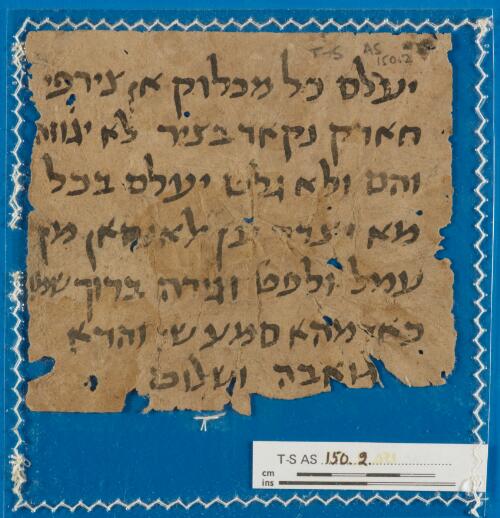 T-S AS 150.2
יעלם כל מכלוק אן צירפי
חאדק נקאד בציר לא יגווז
והם ולא גלט יעלם בכל
מא יצדר ען לאנסאן מן
עמל ולפט וגירה ברוך שמו
סמע והדא
גואבה ושלום
T-S AS 150.2
cm
ins